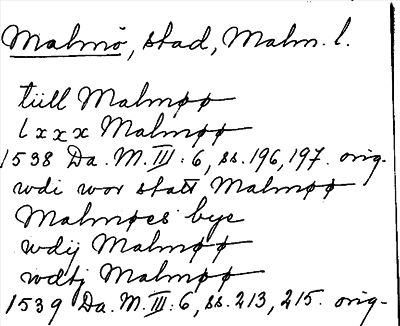 Malmö, stad, Malm. l.
tiill Malmøø
lxxx Malmøø
1538 Da. M. III: 6, ss. 196, 197. orig.
wdi wor statt Malmøø
Malmøes bye
wdij Malmøø
wdtj Malmøø
1539 Da. M. III: 6, ss. 213, 215. orig.